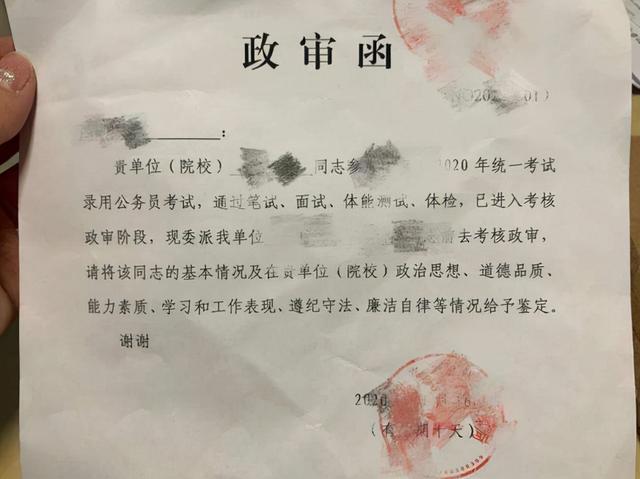 政审函
(NO202 01)
：
贵单位（院校） 同志参 2020 年统一考试
录用公务员考试，通过笔试、面试、体能测试、体检，已进入考核
政审阶段，现委派我单位 前去考核政审，
请将该同志的基本情况及在贵单位（院校）政治思想、道德品质、
能力素质、学习和工作表现、遵纪守法、廉洁自律等情况给予鉴定。
谢谢
2020 月
（有 期十天）